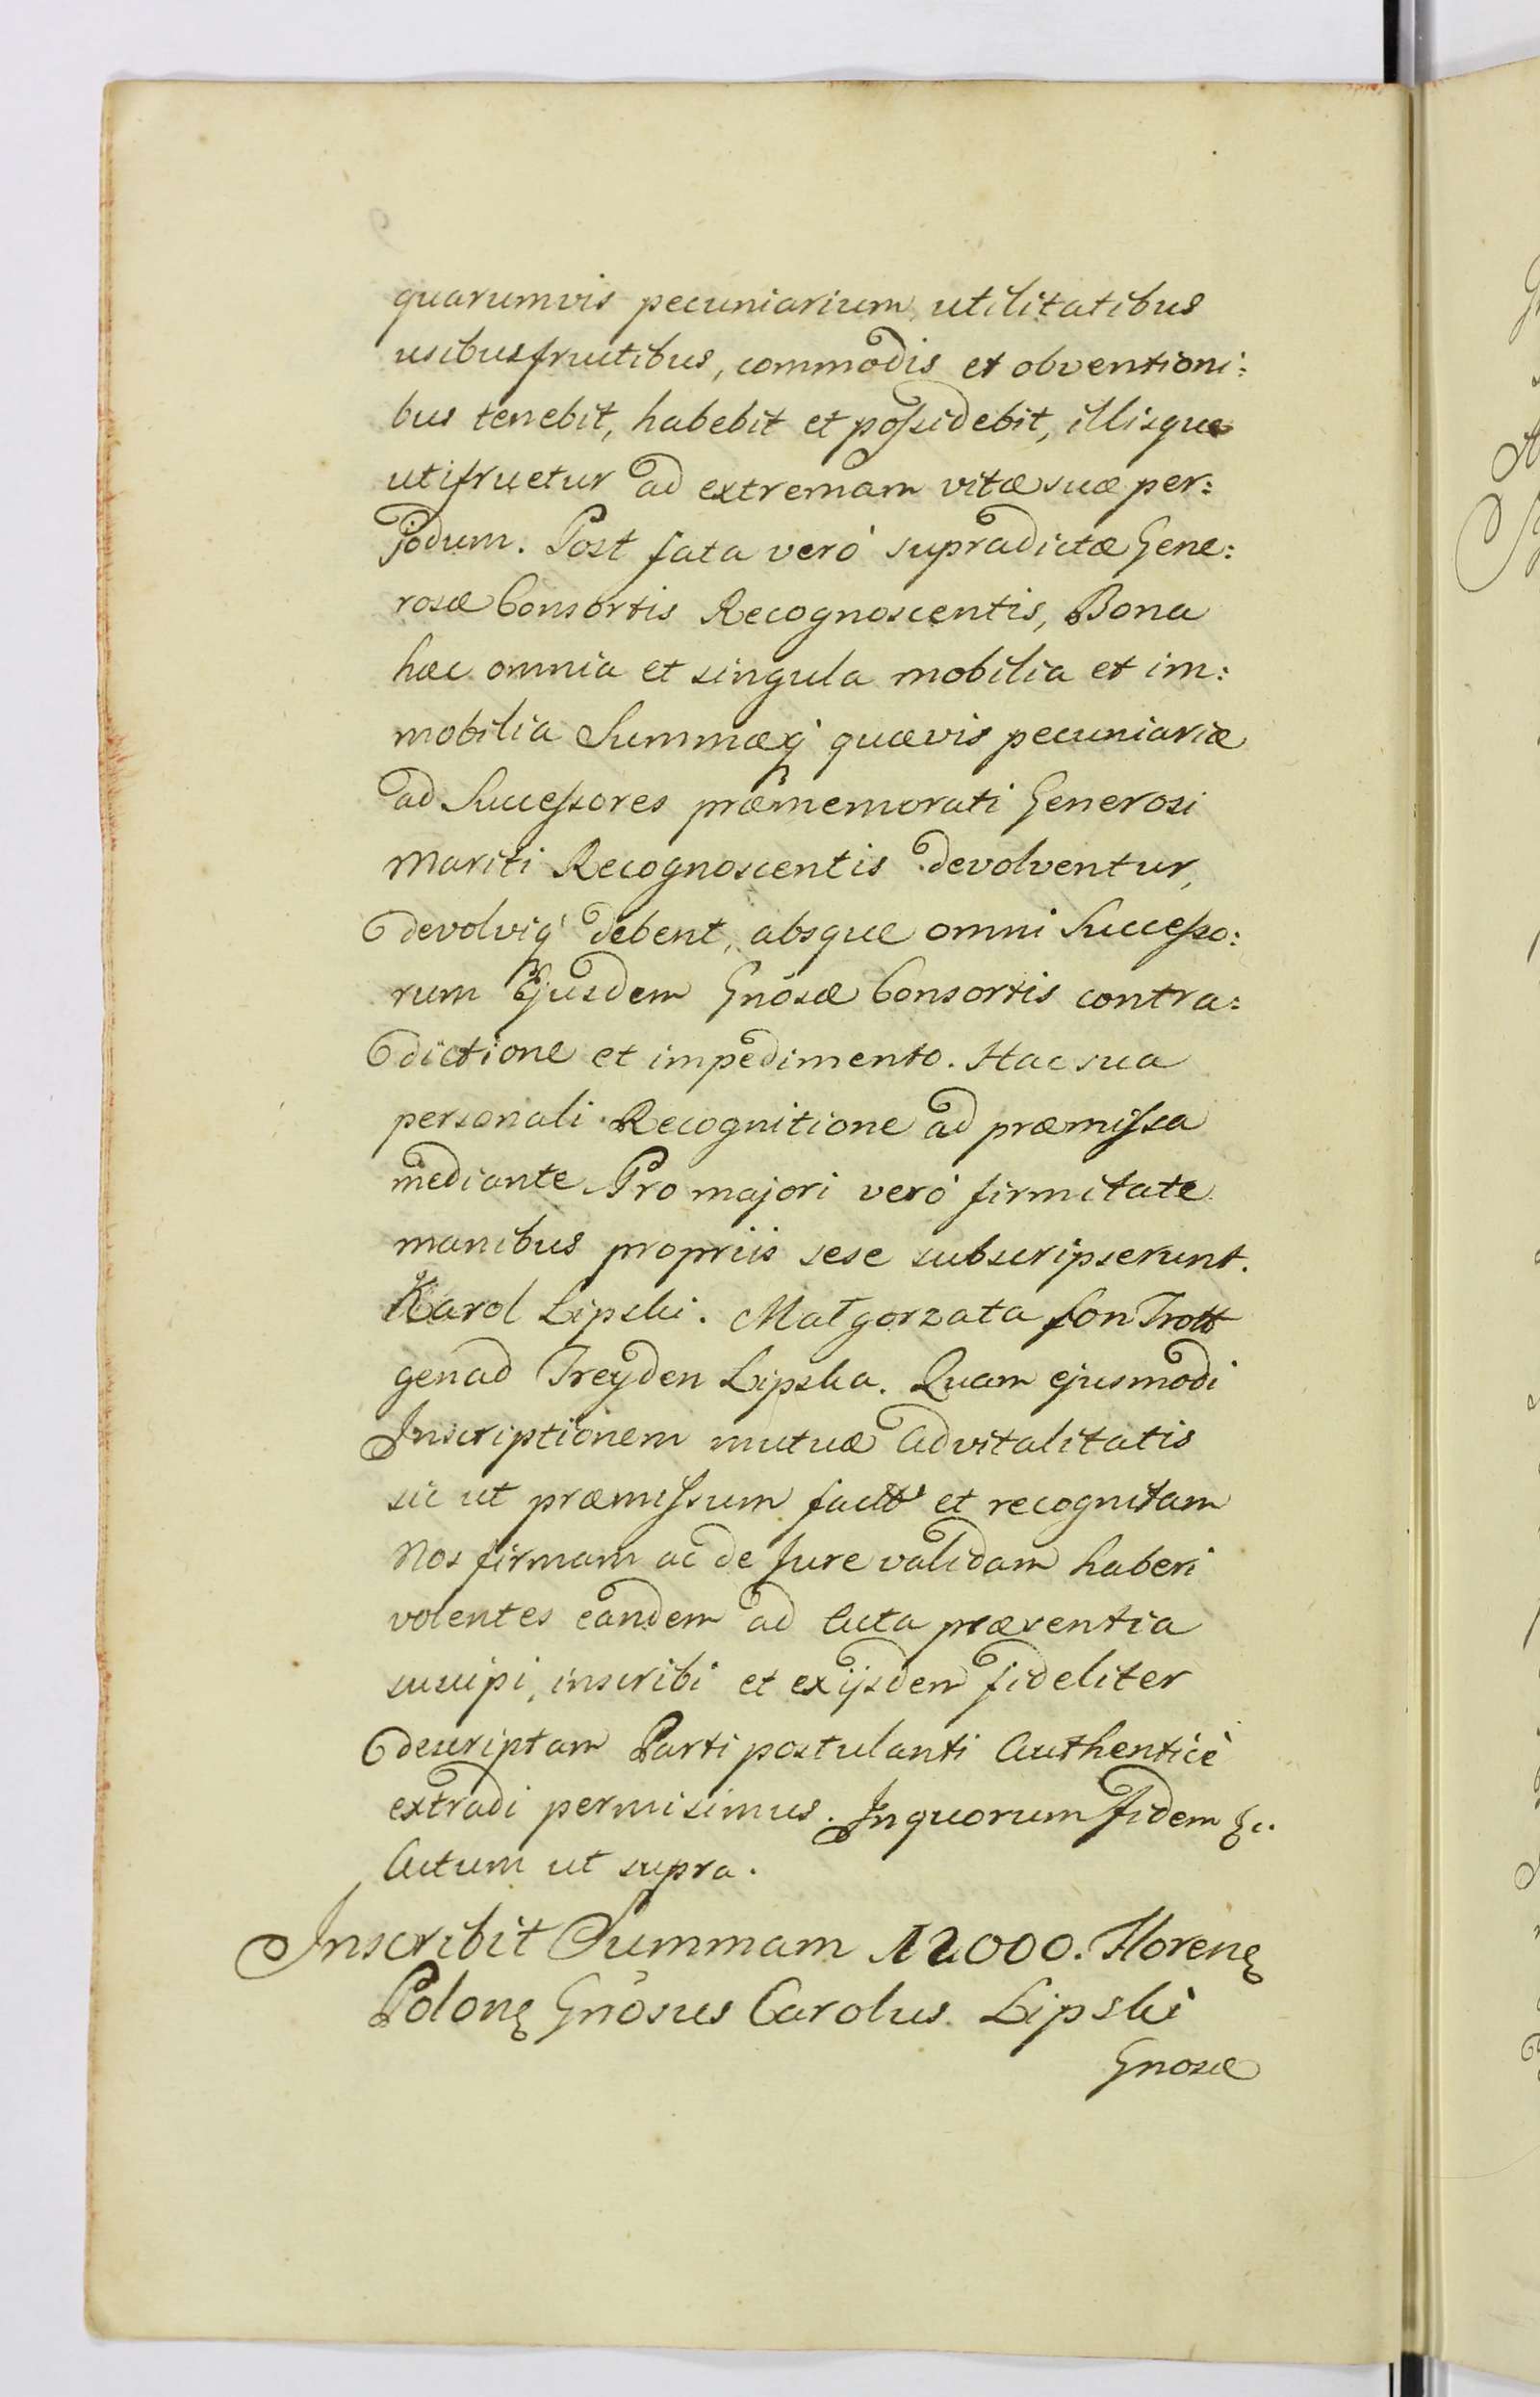 quarumvis pecuniarium utilitatibus
usibusfructibus, commodis et obventioni:
bus tenebit, habebit et poſsidebit, illisque
utifruetur ad extremam vitæ suæ per:
jodum. Post fata veró supradictæ Gene:
rosæ Consortis Recognoscentis, Bona
hæc omnia et singula mobilia et im:
mobilia Summæq́ quævis pecuniariæ
ad Succeſsores præmemorati Generosi
Mariti Recognoscentis devolventur,
devolviq́ debent, absque omni Succeſso:
rum Ejusdem Gnōsæ Consortis contra:
dictione et impedimento. Hac sua
personali Recognitione ad præmiſsa
mediante Pro majori veró firmitate
manibus propriis sese subscripserunt.
Karol Lipski. Małgorzata fon Trott
genad Treyden Lipska. Quam ejusmodi
Inscriptionem mutuæ Advitalitatis
sic ut præmiſsum factt et recognitam
Nos firmam ac de Jure validam haberi
volentes eandem ad Acta præsentia
suscipi, inscribi et exijsdem fideliter
descriptam Parti postulanti Authenticè
extradi permisimus. In quorum Fidem &c.
Actum ut supra.
Inscribit Summam 12000. Florenę
Polonę Gnōsus Carolus Lipski
Gnosæ